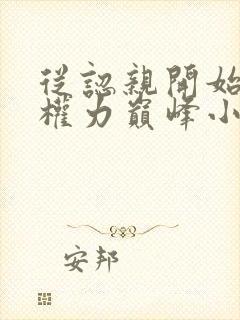 從認親開始
權力巔峰小
安邦